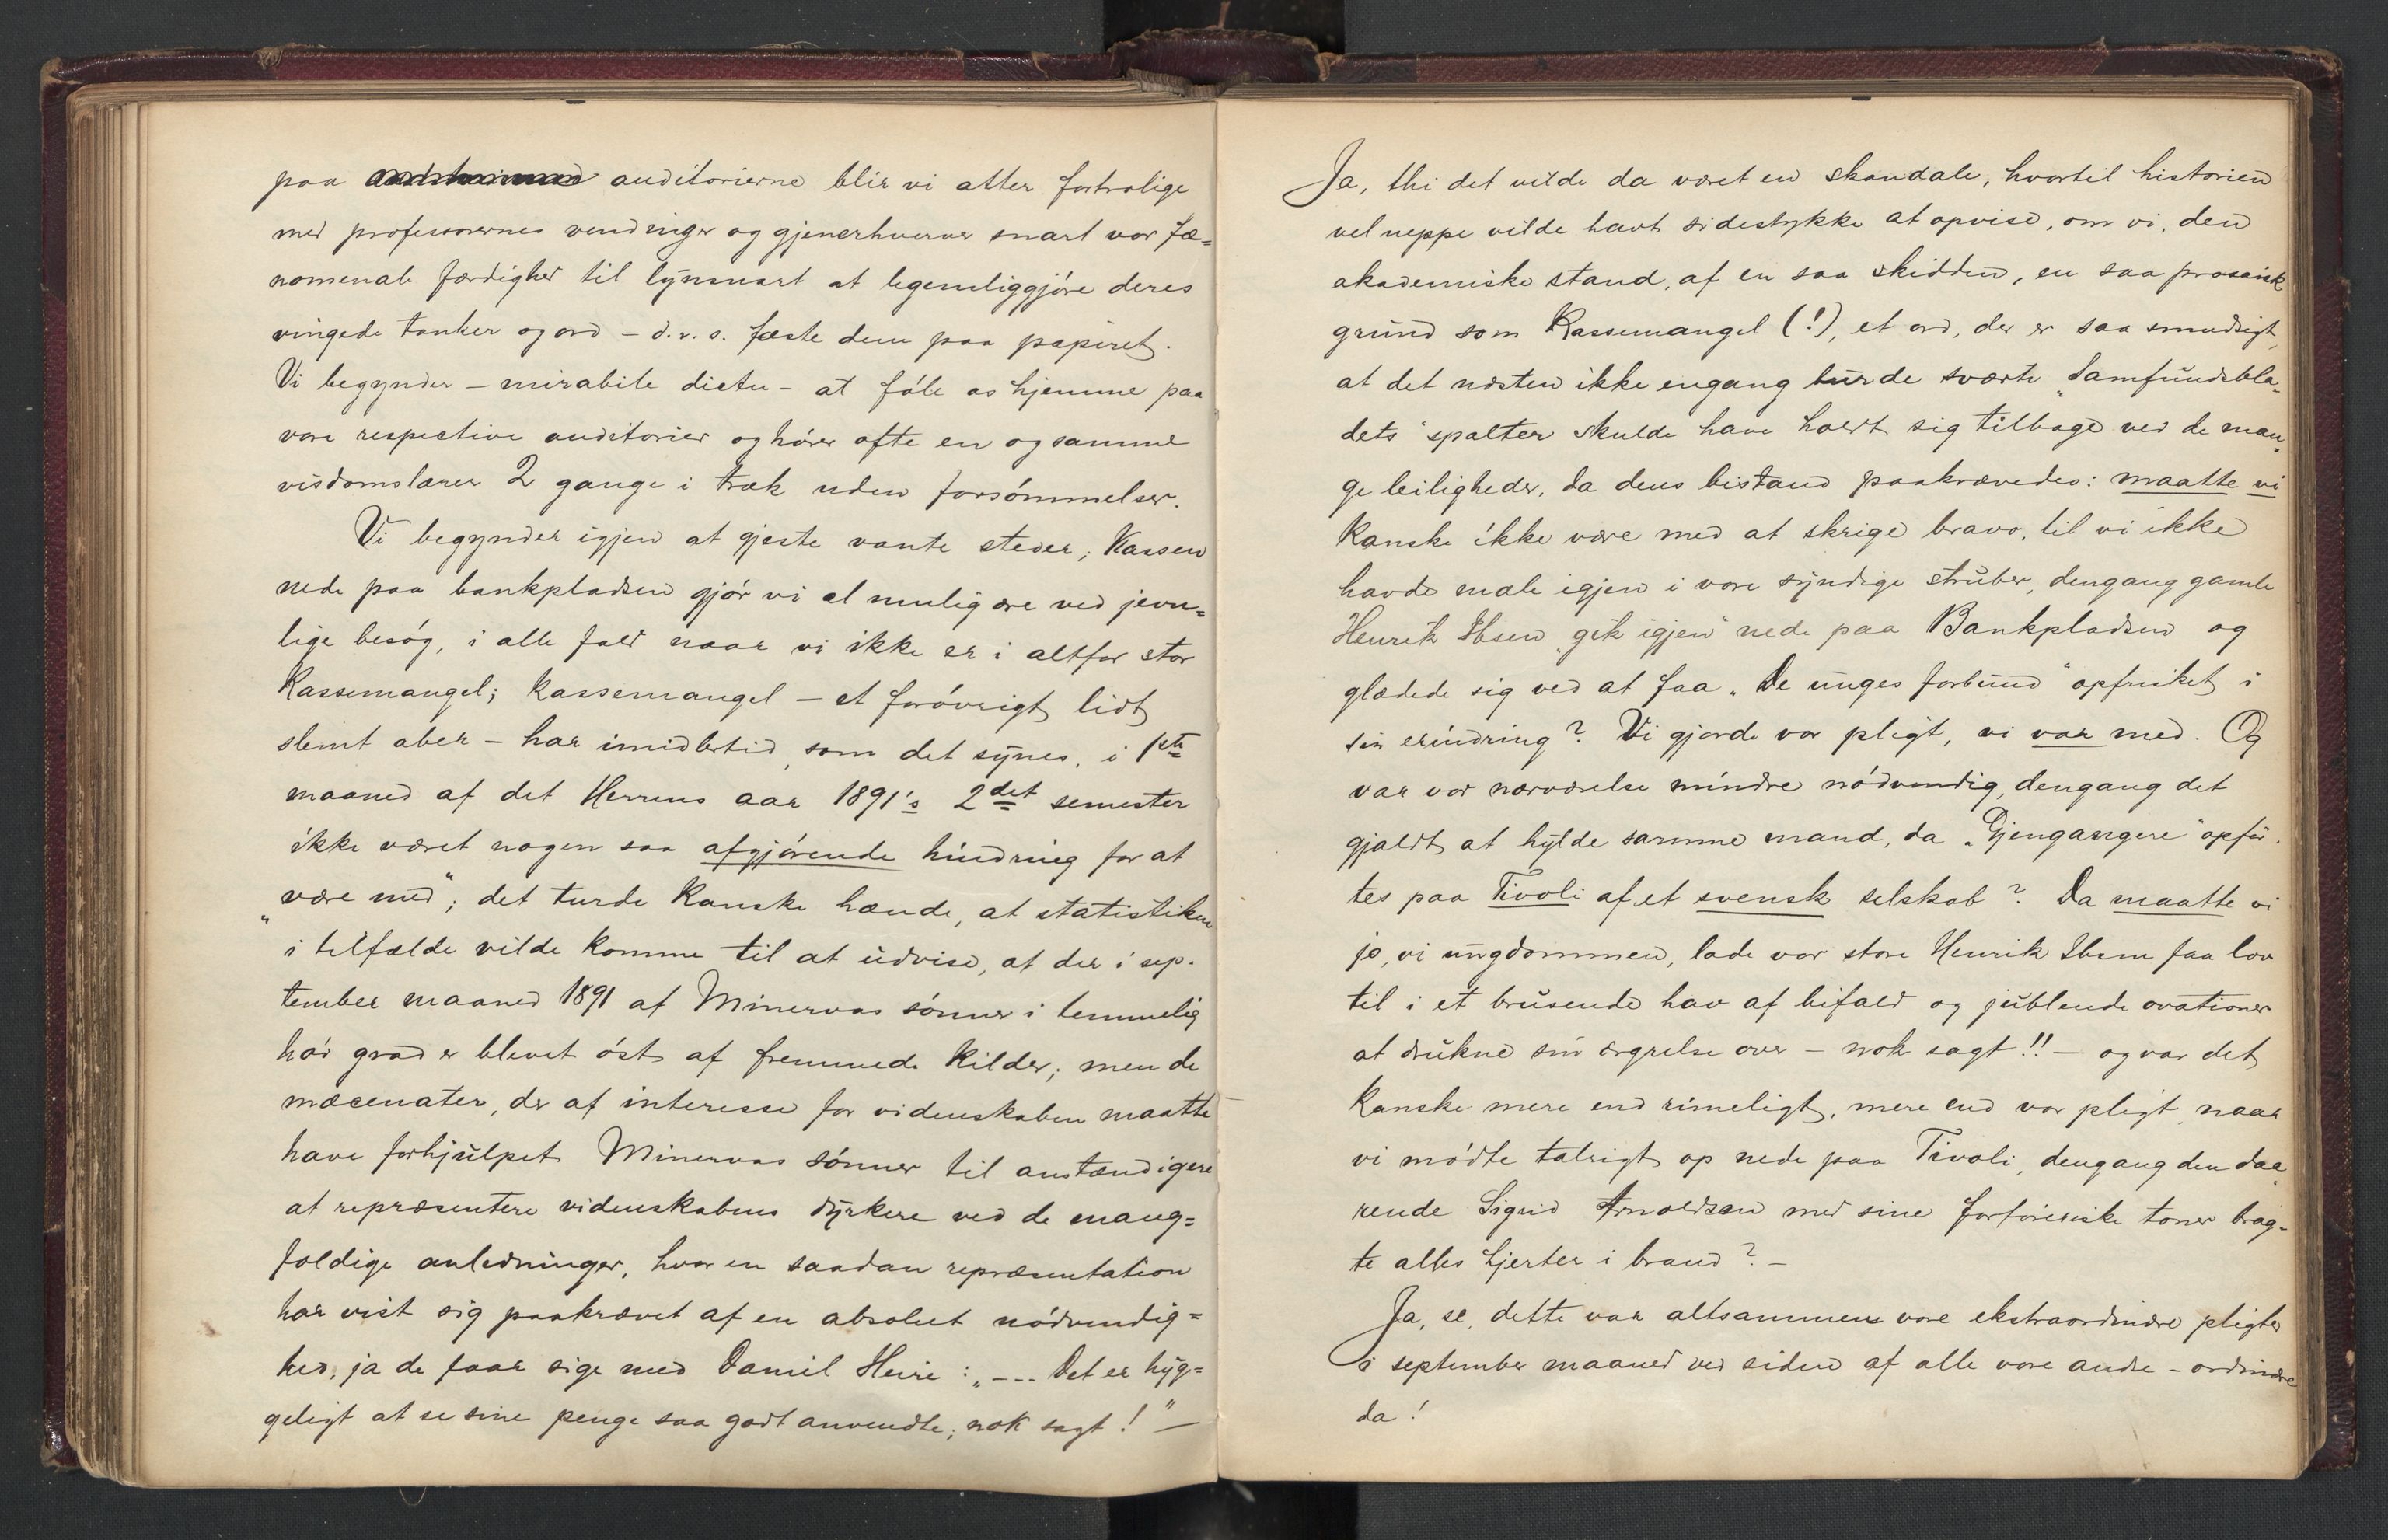 paa auditorierne blir vi atter fortrolige
med professorernes vendinger og gjenerhverver snart vor fæ=
nomenale færdighed til lynsnart at legemliggjöre deres
vingede tanker og ord – d.v.s. fæste dem paa papiret.
Vi begynder – mirabile dictu – at föle os hjemme paa
vore respective auditorier og hörer ofte en og samme
visdomslærer 2 gange i træk uden forsömmelser.
Vi begynder igjen at gjeste vante steder; Kassen
nede paa bankpladsen gjör vi al mulig ære ved jevn=
lige besög, i alle fald naar vi ikke er i altfor stor
Kassemangel; kassemangel – et forövrigt lidt
slemt aber – har imidlertid, som det synes, i 1ste
maaned af det Herrens aar 1891's 2det semester
ikke været nogen saa afgjörende hindring for at
„være med“; det turde kanske hænde, at statistiken
i tilfælde vilde komme til at udvise, at der i sep-
tember maaned 1891 af Minervas sönner i temmelig
höi grad er blevet öst af fremmede kilder; men de
mæcenater, der af interesse for videnskaben maatte
have forhjulpet Minervas sönner til anstændigere
at repræsentere videnskabens dyrkere ved de mang=
foldige anledninger, hvor en saadan repræsentation
har vist sig paakrævet af en absolut nödvendig=
hed, ja de faar sige med Daniel Heire: „--- Det er hyg=
geligt at se sine penge saa godt anvendte; nok sagt!“ –
Ja, thi det vilde da været en skandale, hvortil historien
vel neppe vilde havt sidestykke at opvise, om vi, den
akademiske stand, af en saa skidden, en saa prosaisk
grund som Kassemangel (!), et ord, der er saa smudsigt,
at det næsten ikke engang burde sværte „Samfundsbla-
dets“ spalter skulde have holdt sig tilbage ved de man-
ge leiligheder, da dens bistand paakrævedes: maatte vi
kanske ikke være med at skrige bravo, til vi ikke
havde mæle igjen i vore syndige struber, dengang gamle
Henrik Ibsen „gik igjen“ nede paa Bankpladsen og
glædede sig ved at faa „De unges forbund“ opfrisket i
sin erindring? Vi gjorde vor pligt, vi var med. Og
var vor nærværelse mindre nödvendig, dengang det
gjaldt at hylde samme mand, da „Gjengangere“ opför-
tes paa Tivoli af et svensk selskab? Da maatte vi
jo, vi ungdommen, lade vor store Henrik Ibsen faa lov
til i et brusende hav af bifald og jublende ovationer
at drukne sin ærgrelse over – nok sagt!! – og var det
kanske mere end rimeligt, mere end vor pligt, naar
vi mödte talrigt op nede paa Tivoli, dengang den daa-
rende Sigrid Arnoldson med sine forföreriske toner brag-
te alles hjerter i brand? –
Ja, se, dette var altsammen vore ekstraordinære pligter
i september maaned ved siden af alle vore andre – ordinære
da!